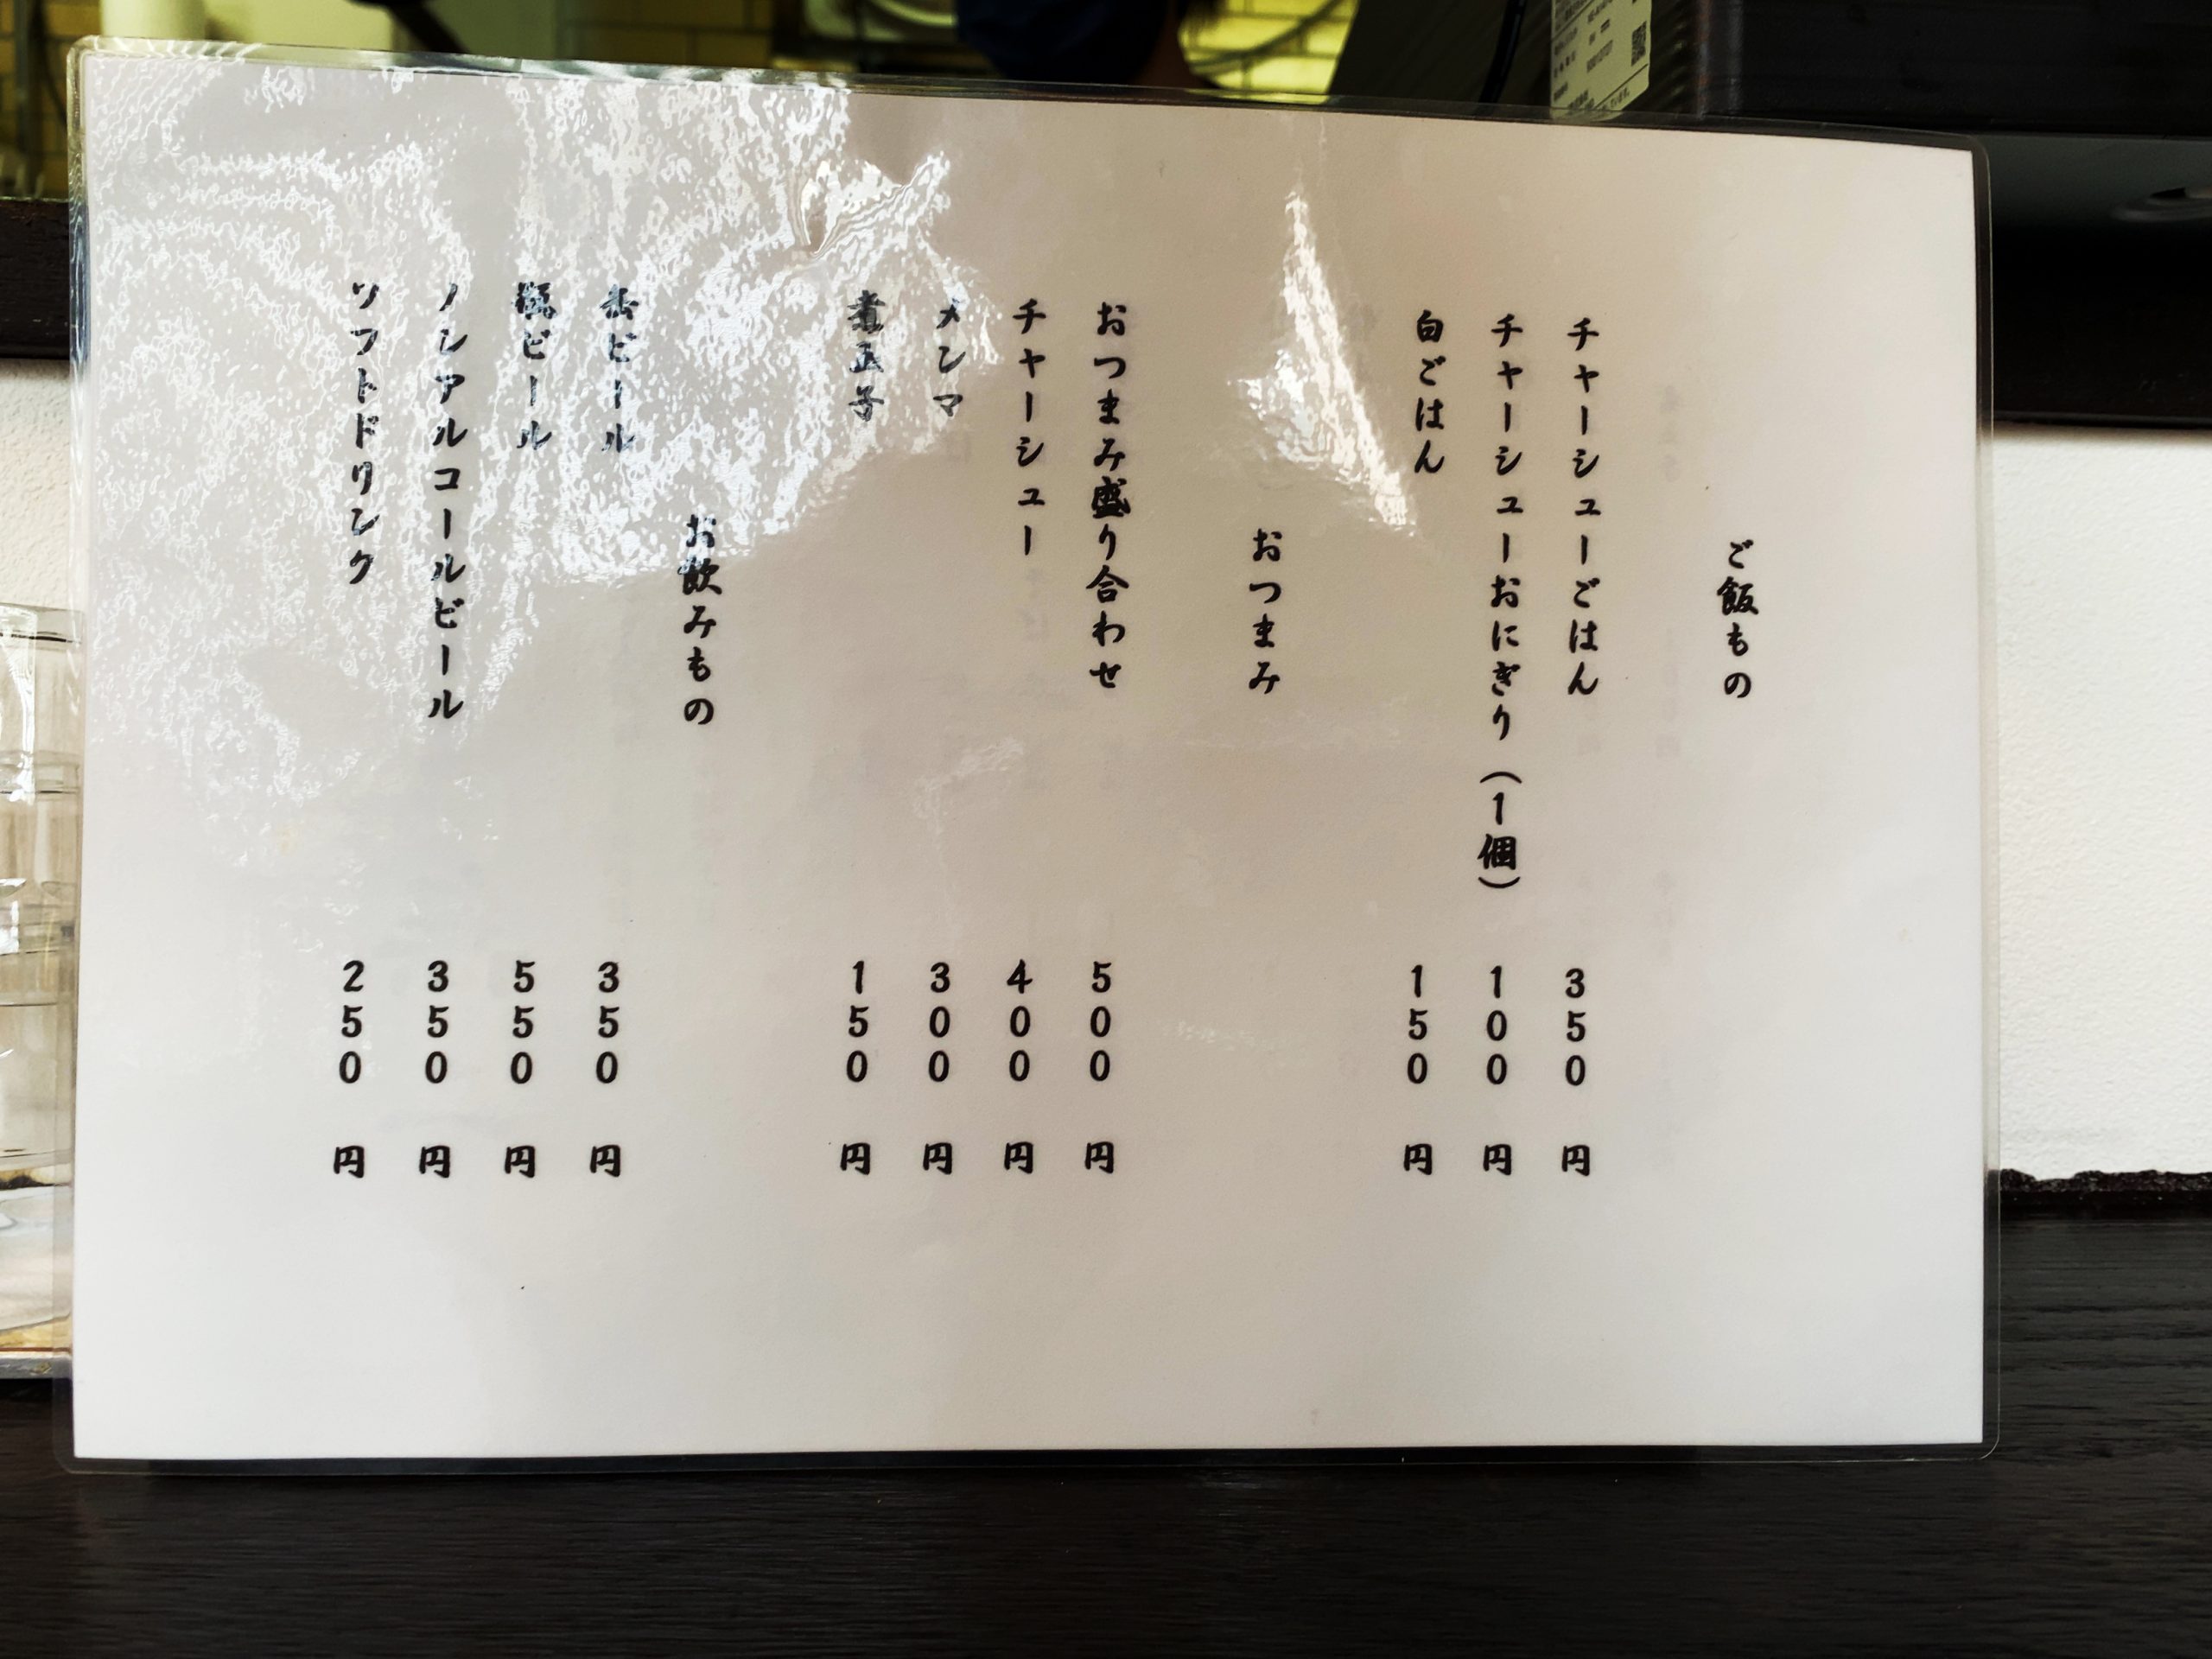 ご飯もの
チャーシューごはん 350 円
チャーシューおにぎり（1個） 100 円
白ごはん 150 円
おつまみ
おつまみ盛り合わせ 500 円
チャーシュー 400 円
メンマ 300 円
煮玉子 150 円
お飲みもの
缶ビール 350 円
瓶ビール 550 円
ノンアルコールビール 350 円
ソフトドリンク 250 円